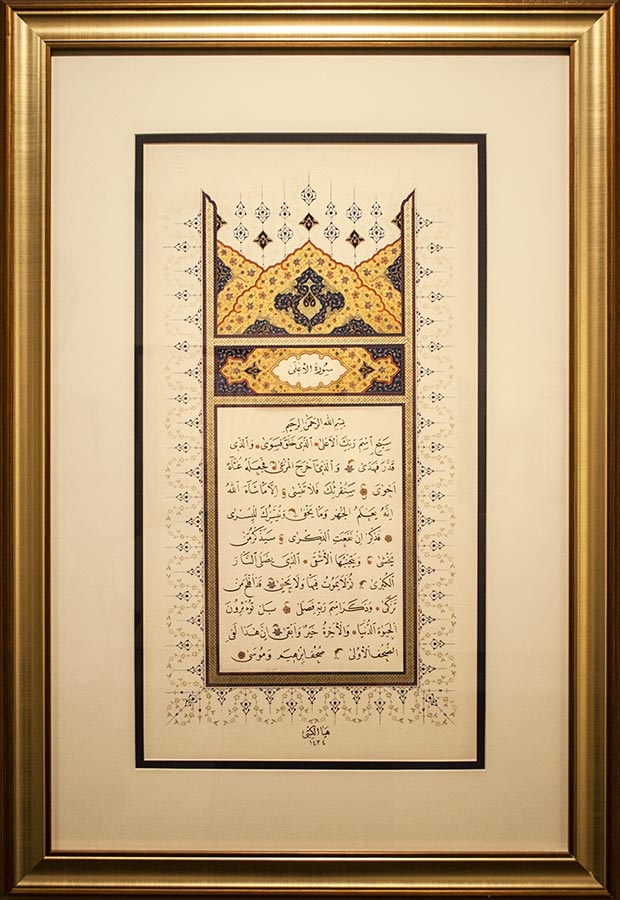 سُورَةُ الْأَعْلَى
بِسْمِ اللهِ الرَّحْمٰنِ الرَّحِيمِ
سَبِّحِ اسْمَ رَبِّكَ الْأَعْلَىٰ الَّذِى خَلَقَ فَسَوَّىٰ وَالَّذِى
قَدَّرَ فَهَدَىٰ وَالَّذِىٓ أَخْرَجَ الْمَرْعَىٰ فَجَعَلَهُ غُثَآءً
أَحْوَىٰ سَنُقْرِئُكَ فَلَا تَنْسَىٰ إِلَّا مَا شَآءَ اللهُ
إِنَّهُ يَعْلَمُ الْجَهْرَ وَمَا يَخْفَىٰ وَنُيَسِّرُكَ لِلْيُسْرَىٰ
فَذَكِّرْ إِنْ نَفَعَتِ الذِّكْرَىٰ سَيَذَّكَّرُ مَنْ
يَخْشَىٰ وَيَتَجَنَّبُهَا الْأَشْقَى الَّذِى يَصْلَى النَّارَ
الْكُبْرَىٰ ثُمَّ لَا يَمُوتُ فِيهَا وَلَا يَحْيَىٰ قَدْ أَفْلَحَ مَنْ
تَزَكَّىٰ وَذَكَرَ اسْمَ رَبِّهِ فَصَلَّىٰ بَلْ تُؤْثِرُونَ
الْحَيٰوةَ الدُّنْيَا وَالْآخِرَةُ خَيْرٌ وَأَبْقَىٰ إِنَّ هٰذَا لَفِى
الصُّحُفِ الْأُولَىٰ صُحُفِ إِبْرٰهِيمَ وَمُوسَىٰ
١٤٢٤